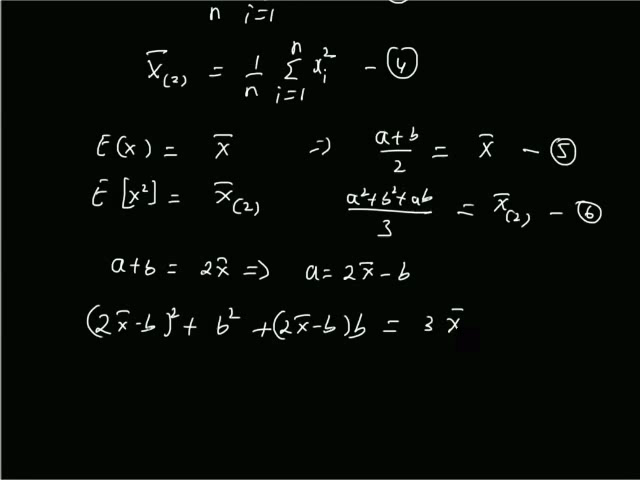 n i=1
x̄₍₂₎ = 1/n Σⁿᵢ₌₁ xᵢ² - ④
E(x) = x̄ => (a+b)/2 = x̄ - ⑤
E[x²] = x̄₍₂₎ (a²+b²+ab)/3 = x̄₍₂₎ - ⑥
a+b = 2x̄ => a = 2x̄-b
(2x̄-b)² + b² + (2x̄-b)b = 3x̄